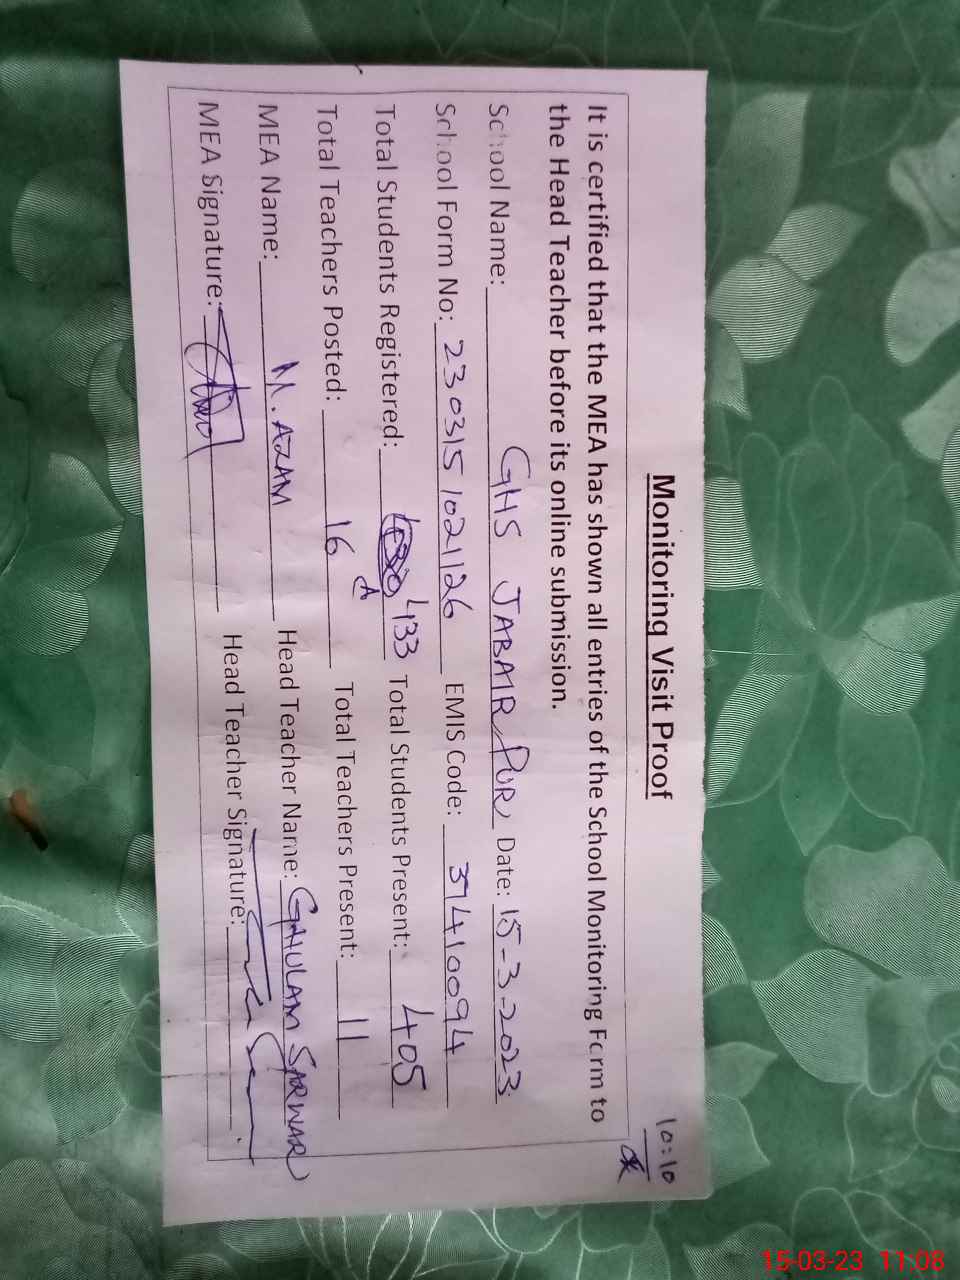 10:10
Monitoring Visit Proof
It is certified that the MEA has shown all entries of the School Monitoring Form to
the Head Teacher before its online submission.
School Name: GHS JABAIR PUR Date: 15-3-2023
School Form No: 230315 1021126 EMIS Code: 37410094
Total Students Registered: 433 Total Students Present: 405
Total Teachers Posted: 16 Total Teachers Present: 11
MEA Name: M. AZAM Head Teacher Name: GHULAM SARWAR
MEA Signature: Head Teacher Signature:
15-03-23 11:08